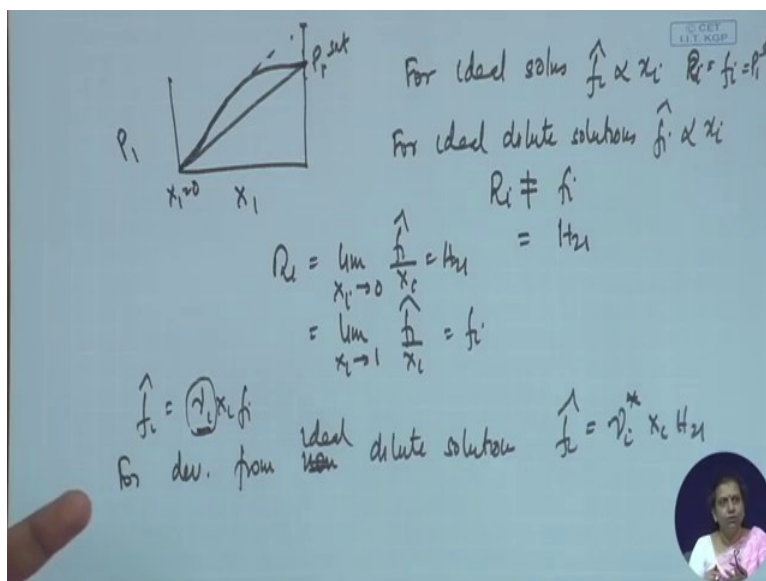 © CET
I.I.T. KGP
P₁ˢᵃᵗ
P₁
x₁=0
x₁
For ideal solns f̂ᵢ ∝ xᵢ Rᵢ = fᵢ = Pᵢˢ
For ideal dilute solutions f̂ᵢ ∝ xᵢ
Rᵢ ≠ fᵢ
= H₂₁
Rᵢ = lim xᵢ→0 f̂ᵢ/xᵢ = H₂₁
= lim xᵢ→1 f̂ᵢ/xᵢ = fᵢ
f̂ᵢ = γᵢ xᵢ fᵢ
For dev. from ideal dilute solution f̂ᵢ = γᵢ* xᵢ H₂₁